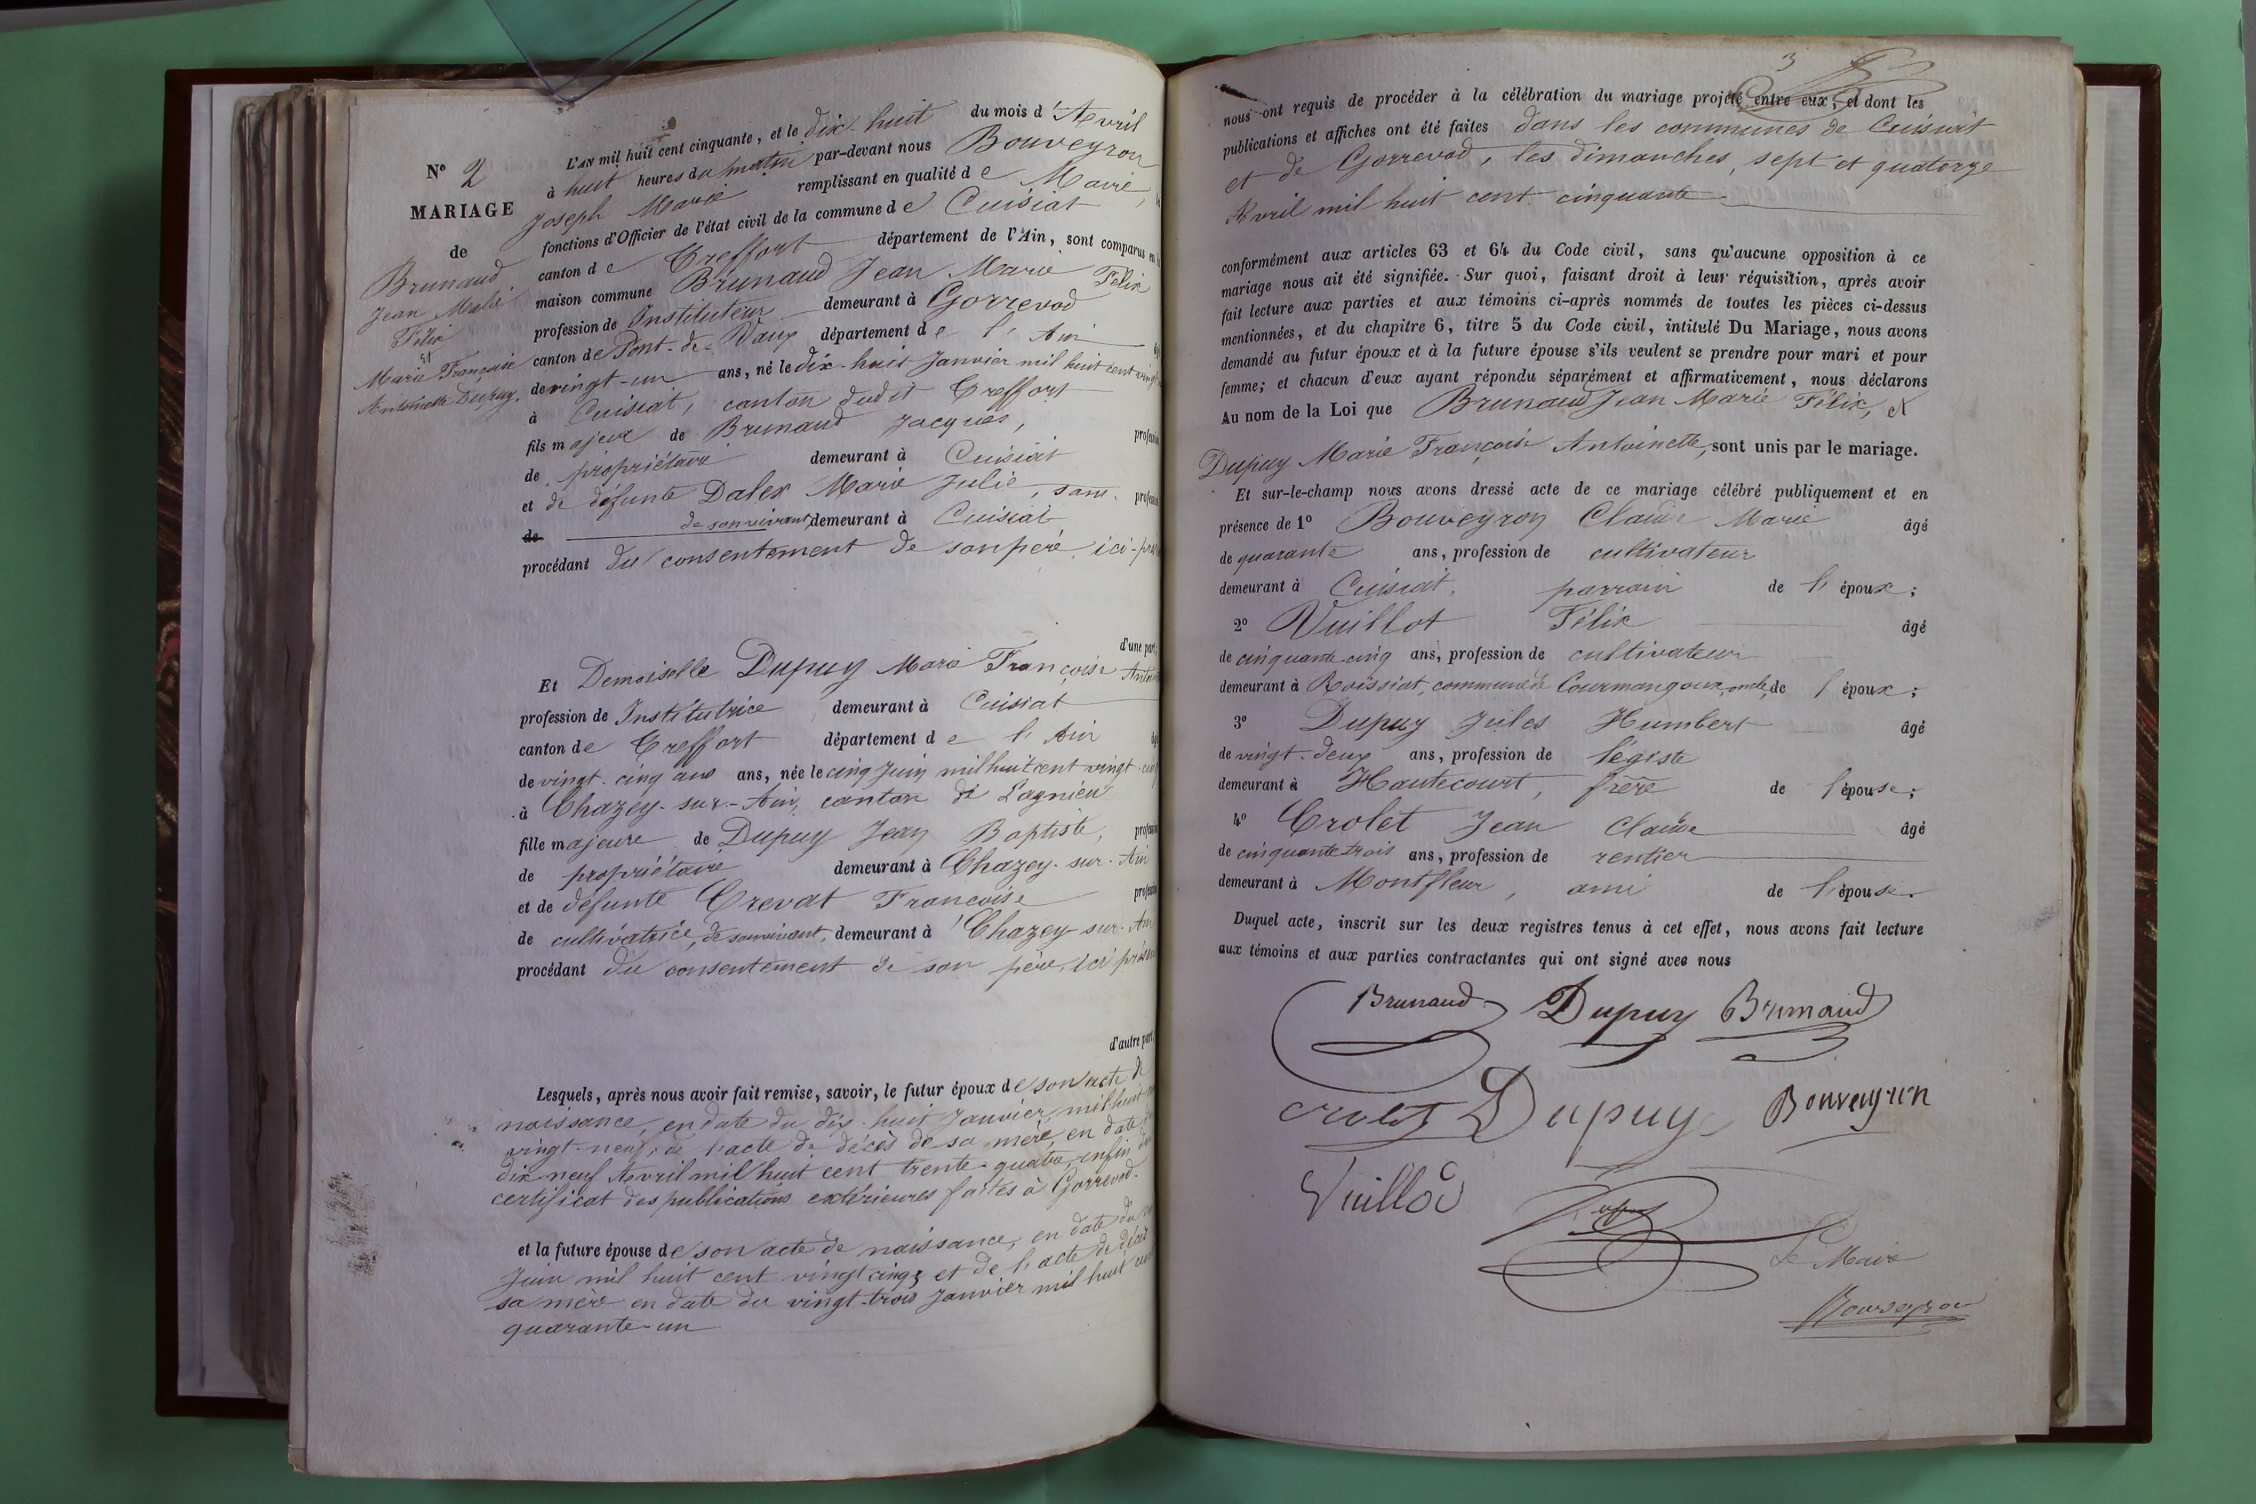 N° 2
MARIAGE
de
Brunaud
Jean Marie
Félix
et
Marie Françoise
Antoinette Dupuy.
L'AN mil huit cent cinquante, et le dix-huit du mois d'Avril
à huit heures du matin par-devant nous Bouveyron
Joseph Marie remplissant en qualité de Maire,
fonctions d'Officier de l'état civil de la commune de Cuisiat
canton de Treffort département de l'Ain, sont comparus en
maison commune Brunaud Jean Marie Félix
profession de Instituteur demeurant à Gorrevod
canton de Pont-de-Vaux département de l'Ain
de vingt-un ans, né le dix-huit Janvier mil huit cent
à Cuisiat, canton dudit Treffort
fils majeur de Brunaud Jacques,
de propriétaire demeurant à Cuisiat
et de défunte Dalex Marie Julie, sans
de de son vivant, demeurant à Cuisiat
procédant du consentement de son père, ici
d'une part,
Et Demoiselle Dupuy Marie Françoise
profession de Institutrice demeurant à Cuisiat
canton de Treffort département de l'Ain
de vingt-cinq ans ans, née le cinq Juin mil huit cent vingt
à Chazey-sur-Ain, canton de Lagnieu
fille majeure de Dupuy Jean Baptiste,
de propriétaire demeurant à Chazey-sur-Ain
et de défunte Crevat Françoise
de cultivatrice, de son vivant, demeurant à Chazey-sur-Ain
procédant du consentement de son père, ici
d'autre part,
Lesquels, après nous avoir fait remise, savoir, le futur époux de son acte de
naissance, en date du dix-huit Janvier mil huit
vingt-neuf, de l'acte de décès de sa mère, en date
dix neuf Avril mil huit cent trente-quatre, enfin
certificat des publications extérieures faites à Gorrevod.
et la future épouse de son acte de naissance, en date du
Juin mil huit cent vingt cinq, et de l'acte de décès
sa mère en date du vingt-trois Janvier mil huit
quarante-un
3
nous ont requis de procéder à la célébration du mariage projeté entre eux, et dont les
publications et affiches ont été faites dans les communes de Cuisiat
et de Gorrevod, les dimanches, sept et quatorze
Avril mil huit cent cinquante
conformément aux articles 63 et 64 du Code civil, sans qu'aucune opposition à ce
mariage nous ait été signifiée. Sur quoi, faisant droit à leur réquisition, après avoir
fait lecture aux parties et aux témoins ci-après nommés de toutes les pièces ci-dessus
mentionnées, et du chapitre 6, titre 5 du Code civil, intitulé Du Mariage, nous avons
demandé au futur époux et à la future épouse s'ils veulent se prendre pour mari et pour
femme; et chacun d'eux ayant répondu séparément et affirmativement, nous déclarons
Au nom de la Loi que Brunaud Jean Marie Félix, et
Dupuy Marie Françoise Antoinette, sont unis par le mariage.
Et sur-le-champ nous avons dressé acte de ce mariage célébré publiquement et en
présence de 1° Bouveyron Claude Marie âgé
de quarante ans, profession de cultivateur
demeurant à Cuisiat, parrain de l'époux;
2° Vuillot Félix âgé
de cinquante cinq ans, profession de cultivateur
demeurant à Roissiat, commune de Courmangoux, oncle, de l'époux;
3° Dupuy Jules Humbert âgé
de vingt-deux ans, profession de légiste
demeurant à Hautecourt, frère de l'épouse;
4° Crolet Jean Claude âgé
de cinquante trois ans, profession de rentier
demeurant à Montfleur, ami de l'épouse.
Duquel acte, inscrit sur les deux registres tenus à cet effet, nous avons fait lecture
aux témoins et aux parties contractantes qui ont signé avec nous
Brunaud Dupuy Brunaud
Crolet Dupuy Bouveyron
Vuillod
Le Maire
Bouveyron